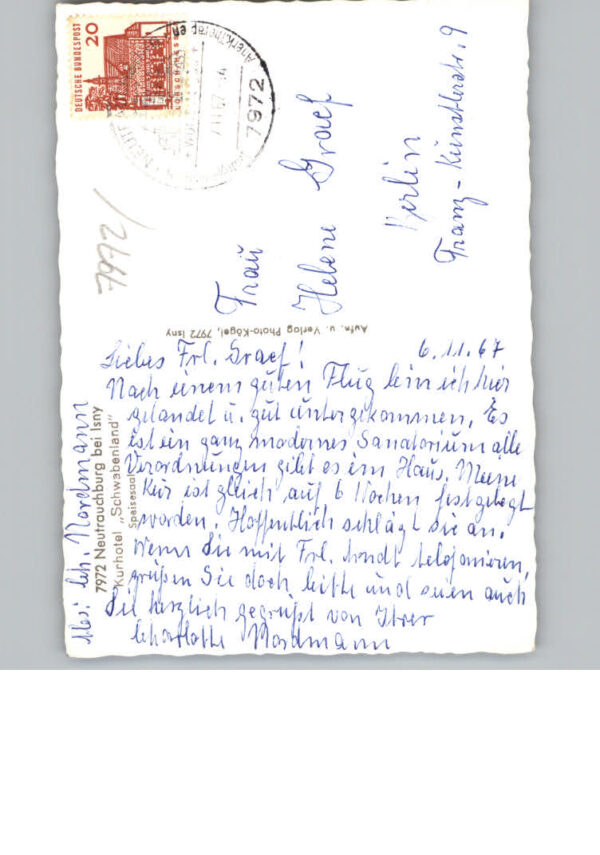 DEUTSCHE BUNDESPOST
20
LORSCH
7972
7972/
Frau
Helene Graef
Berlin
Franz-Künstlerstr. 9
Aufn. u. Verlag Photo-Kögel, 7972 Isny
6.11.67
Liebes Frl. Graef!
Nach einem guten Flug bin ich hier
gelandet u. gut untergekommen. Es
ist ein ganz modernes Sanatorium alle
Verordnungen gibt es im Haus. Meine
Kur ist gleich auf 6 Wochen festgelegt
worden. Hoffentlich schlägt sie an.
Wenn Sie mit Frl. telefonieren,
grüßen Sie doch bitte und seien auch
Sie herzlich gegrüßt von Ihrer
Charlotte Nordmann
Abs: Ch. Nordmann
7972 Neutrauchburg bei Isny
Kurhotel „Schwabenland"
Speisesaal